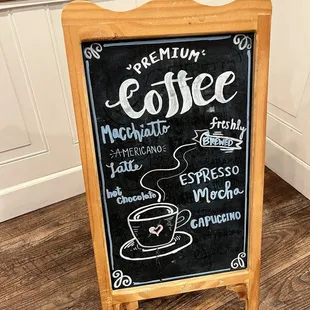 "PREMIUM"
Coffee
Macchiatto
AMERICANO
latte
hot
Chocolate
freshly
BREWED
ESPRESSO
Mocha
CAPPUCINO